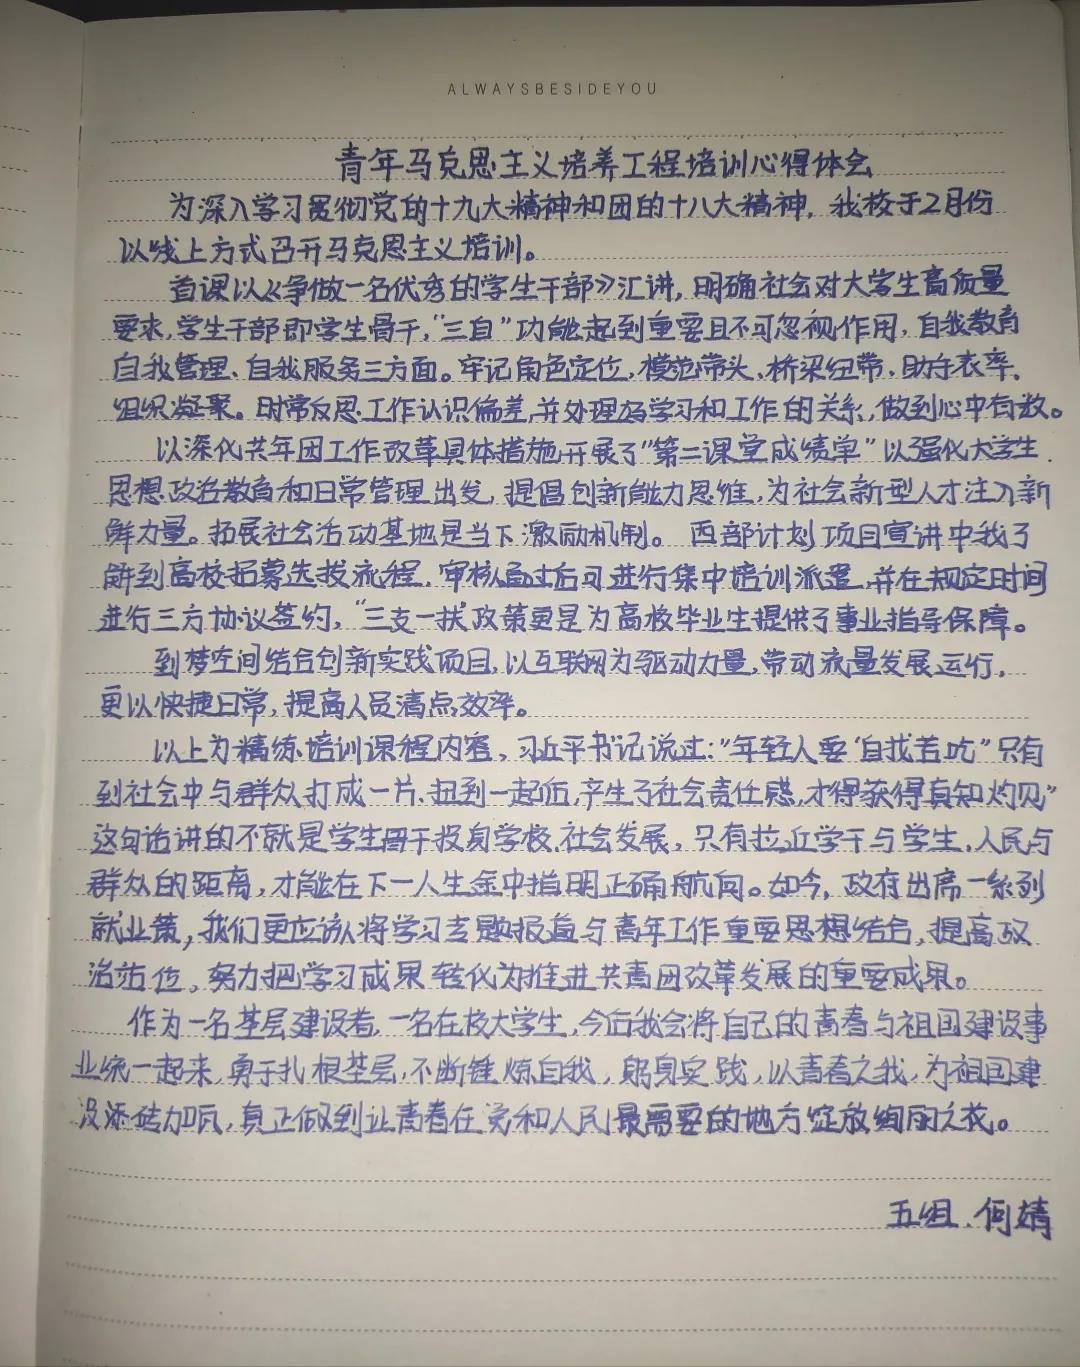 ALWAYSBESIDEYOU
青年马克思主义培养工程培训心得体会
为深入学习贯彻党的十九大精神和团的十八大精神，我校于2月份
以线上方式召开马克思主义培训。
首课以《争做一名优秀的学生干部》汇讲，明确社会对大学生高质量
要求，学生干部即学生骨干，“三自”功能起到重要且不可忽视作用，自我教育
自我管理、自我服务三方面。牢记角色定位，模范带头、桥梁纽带、助手表率、
组织凝聚。时常反思工作认识偏差，并处理好学习和工作的关系，做到心中有数。
以深化共年团工作改革具体措施开展了“第二课堂成绩单”以强化大学生
思想政治教育和日常管理出发，提倡创新能力思维，为社会新型人才注入新
鲜力量。拓展社会活动基地是当下激励机制。西部计划项目宣讲中我了
解到高校招募选拔流程，审核通过后可进行集中培训派遣，并在规定时间
进行三方协议签约，“三支一扶政策更是为高校毕业生提供了事业指导保障。
到梦空间结合创新实践项目，以互联网为驱动力量，带动流量发展运行，
更以快捷日常，提高人员清点效率。
以上为精练培训课程内容，习近平书记说过：“年轻人要‘自找苦吃”只有
到社会中与群众打成一片、扭到一起后，产生了社会责任感，才得获得真知灼见”
这句话讲的不就是学生骨干投身学校、社会发展，只有拉近学干与学生，人民与
群众的距离，才能在下一人生途中指明正确航向。如今，政府出席一系列
就业策，我们更应该将学习专题报道与青年工作重要思想结合，提高政
治站位，努力把学习成果转化为推进共青团改革发展的重要成果。
作为一名基层建设者，一名在校大学生，今后我会将自己的青春与祖国建设事
业统一起来，勇于扎根基层，不断锤炼自我，躬身实践，以青春之我，为祖国建
设添砖加瓦，真正做到让青春在党和人民最需要的地方绽放绚丽之花。
五组．何婧